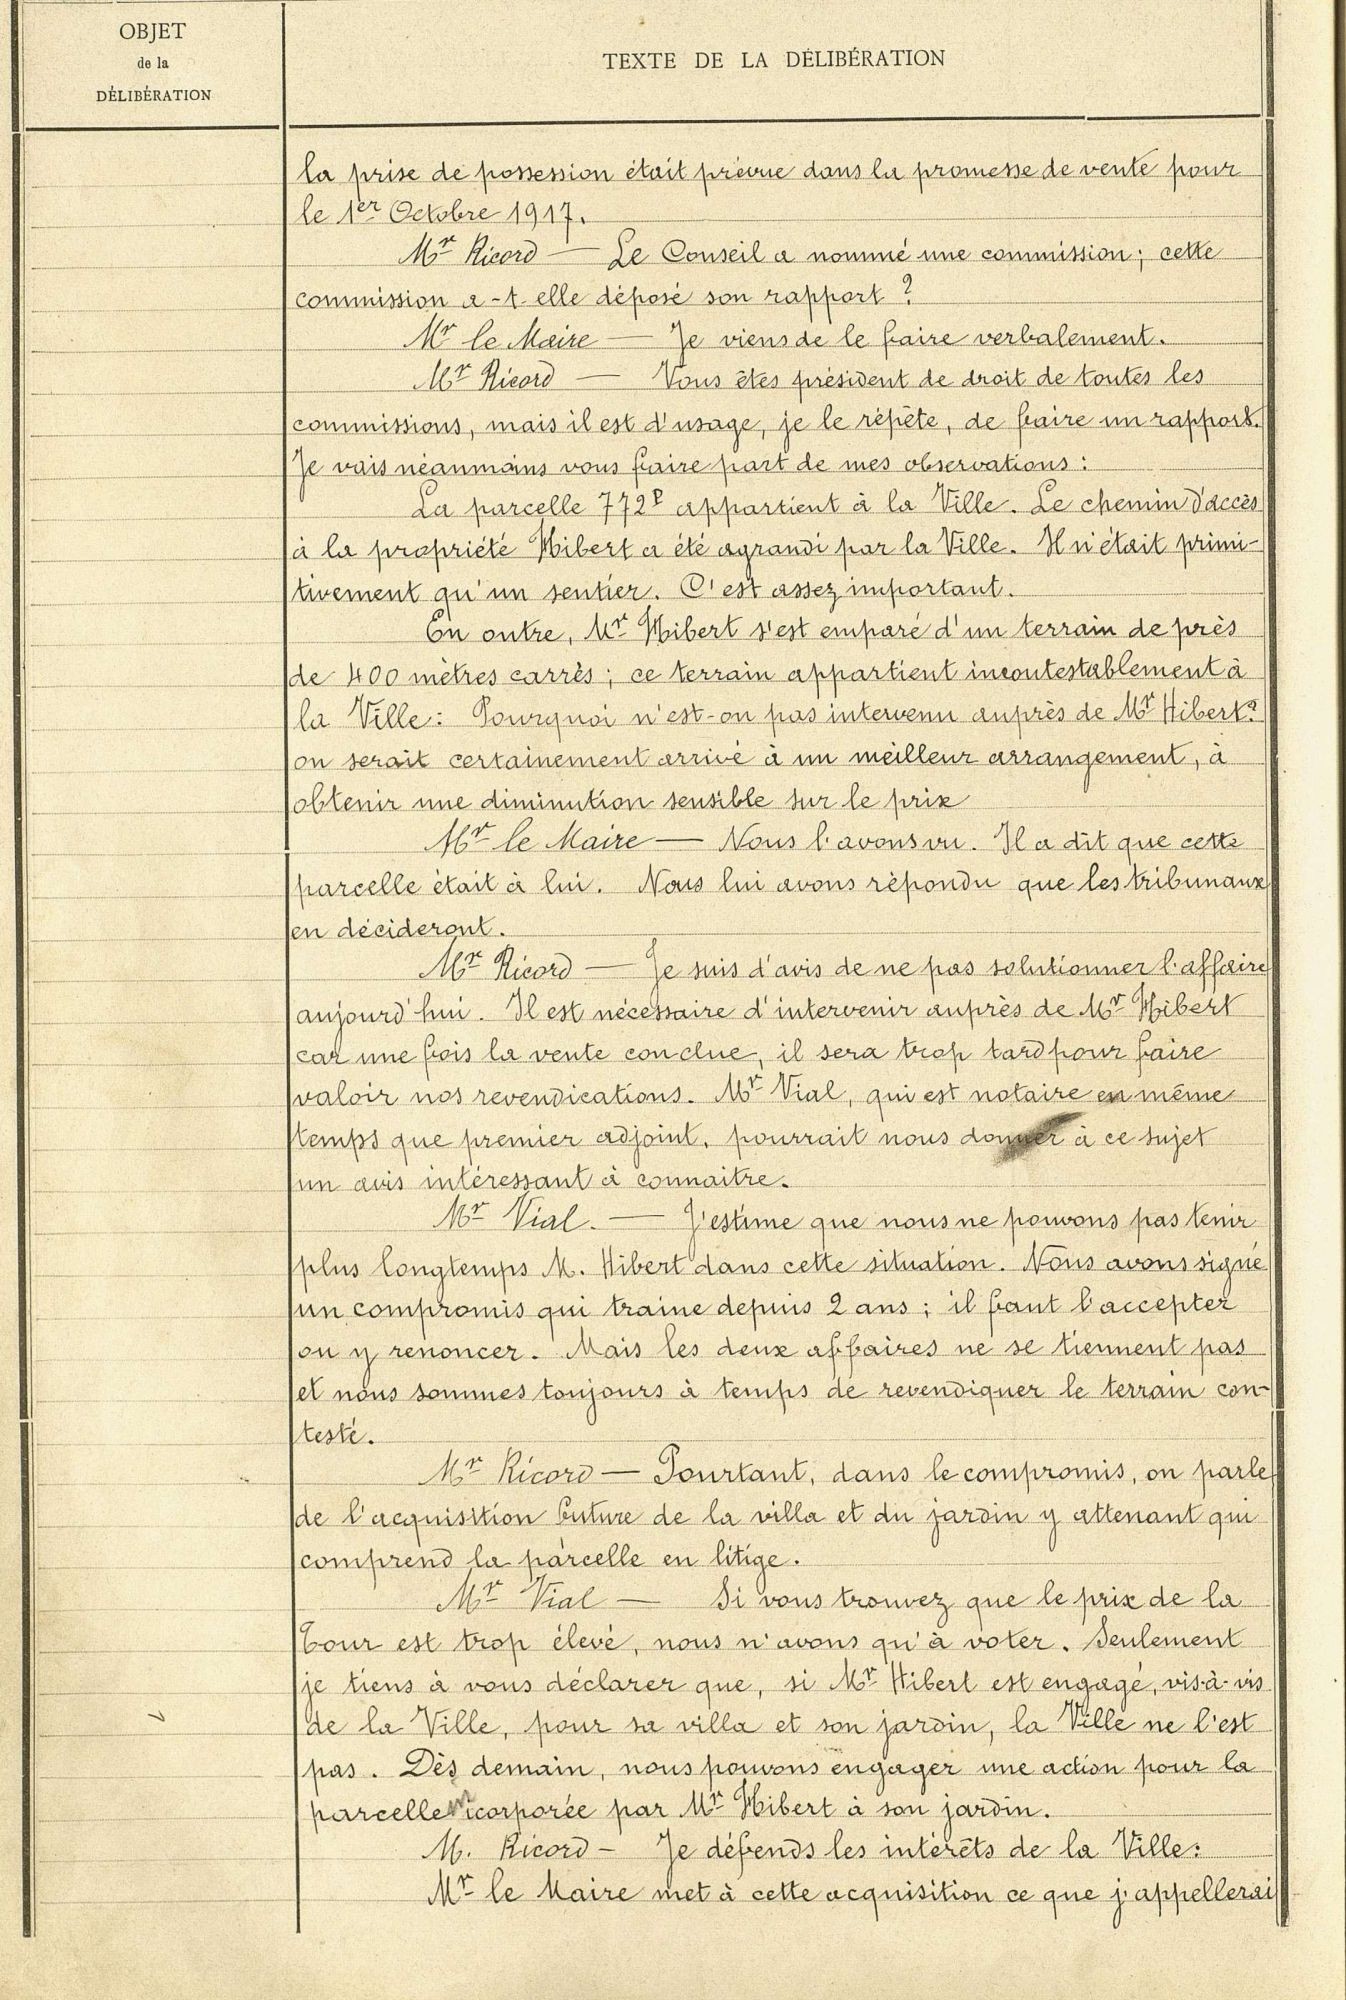 OBJET
de la
DÉLIBÉRATION
TEXTE DE LA DÉLIBÉRATION
la prise de possession était prévue dans la promesse de vente pour
le 1er Octobre 1917.
Mr Ricord — Le Conseil a nommé une commission ; cette
commission a-t-elle déposé son rapport ?
Mr le Maire — Je viens de le faire verbalement.
Mr Ricord — Vous êtes président de droit de toutes les
commissions, mais il est d'usage, je le répète, de faire un rapport.
Je vais néanmoins vous faire part de mes observations :
La parcelle 772P appartient à la Ville. Le chemin d'accès
à la propriété Hibert a été agrandi par la Ville. Il n'était primi-
tivement qu'un sentier. C'est assez important.
En outre, Mr Hibert s'est emparé d'un terrain de près
de 400 mètres carrés ; ce terrain appartient incontestablement à
la Ville : Pourquoi n'est-on pas intervenu auprès de Mr Hibert ?
on serait certainement arrivé à un meilleur arrangement, à
obtenir une diminution sensible sur le prix
Mr le Maire — Nous l'avons vu. Il a dit que cette
parcelle était à lui. Nous lui avons répondu que les tribunaux
en décideront.
Mr Ricord — Je suis d'avis de ne pas solutionner l'affaire
aujourd'hui. Il est nécessaire d'intervenir auprès de Mr Hibert
car une fois la vente conclue, il sera trop tard pour faire
valoir nos revendications. Mr Vial, qui est notaire en même
temps que premier adjoint, pourrait nous donner à ce sujet
un avis intéressant à connaitre.
Mr Vial. — J'estime que nous ne pouvons pas tenir
plus longtemps M. Hibert dans cette situation. Nous avons signé
un compromis qui traine depuis 2 ans ; il faut l'accepter
ou y renoncer. Mais les deux affaires ne se tiennent pas
et nous sommes toujours à temps de revendiquer le terrain con-
testé.
Mr Ricord — Pourtant, dans le compromis, on parle
de l'acquisition future de la villa et du jardin y attenant qui
comprend la parcelle en litige.
Mr Vial — Si vous trouvez que le prix de la
Tour est trop élevé, nous n'avons qu'à voter. Seulement
je tiens à vous déclarer que, si Mr Hibert est engagé, vis-à-vis
de la Ville, pour sa villa et son jardin, la Ville ne l'est
pas. Dès demain, nous pouvons engager une action pour la
parcelle incorporée par Mr Hibert à son jardin.
M. Ricord - Je défends les intérêts de la Ville :
Mr le Maire met à cette acquisition ce que j'appellerai